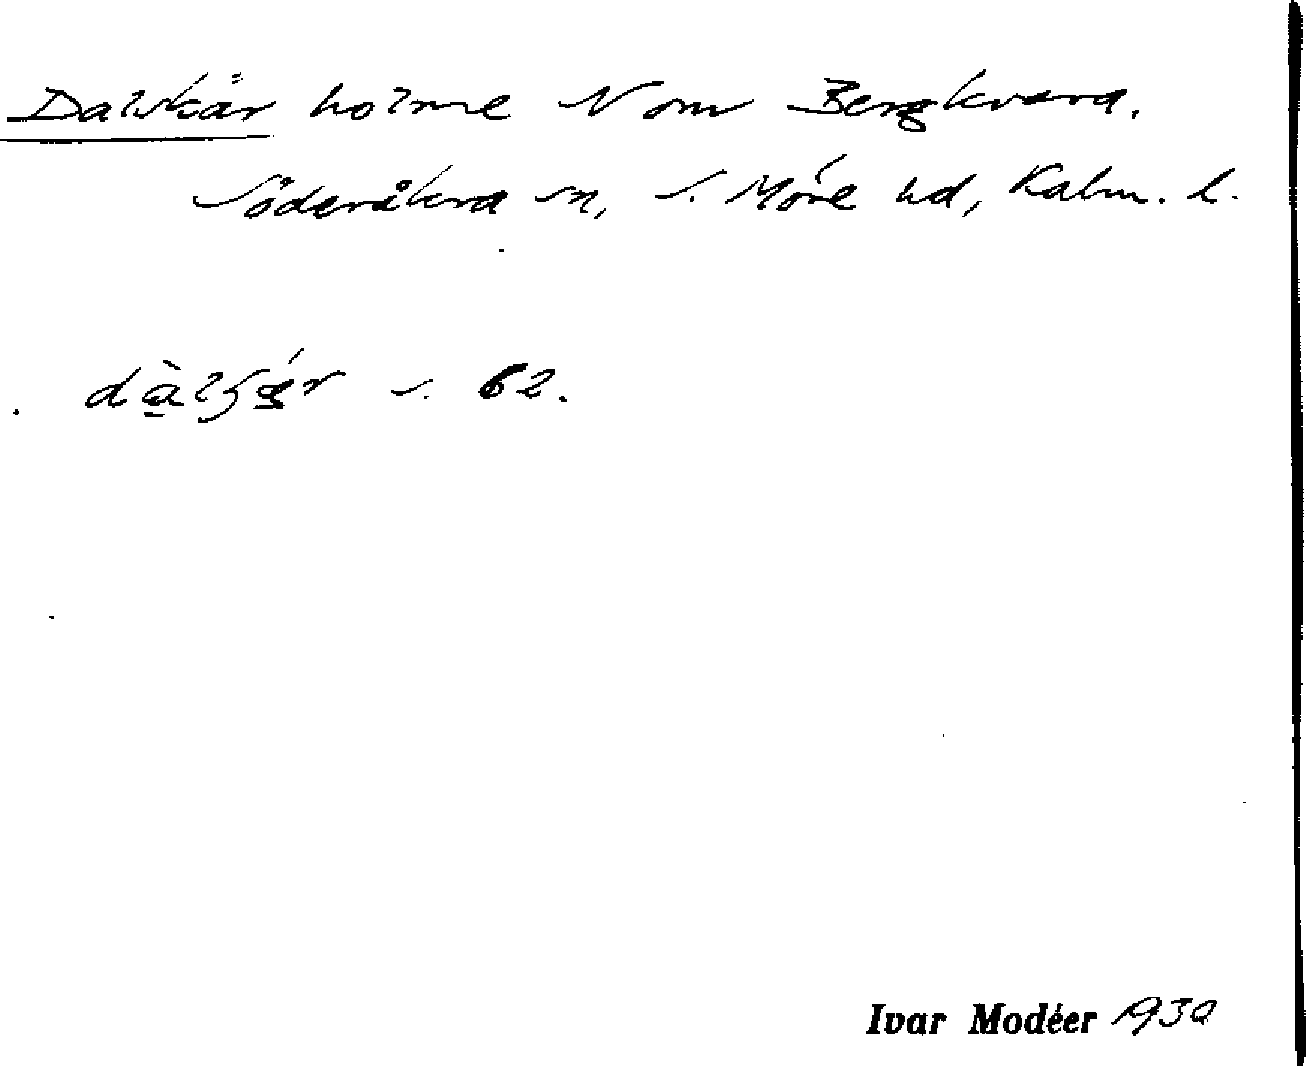 Dalskär holme N om Bergkvara.
Söderåkra sn, S. Möre hd, Kalm. l.
s. 62.
Ivar Modéer 1930